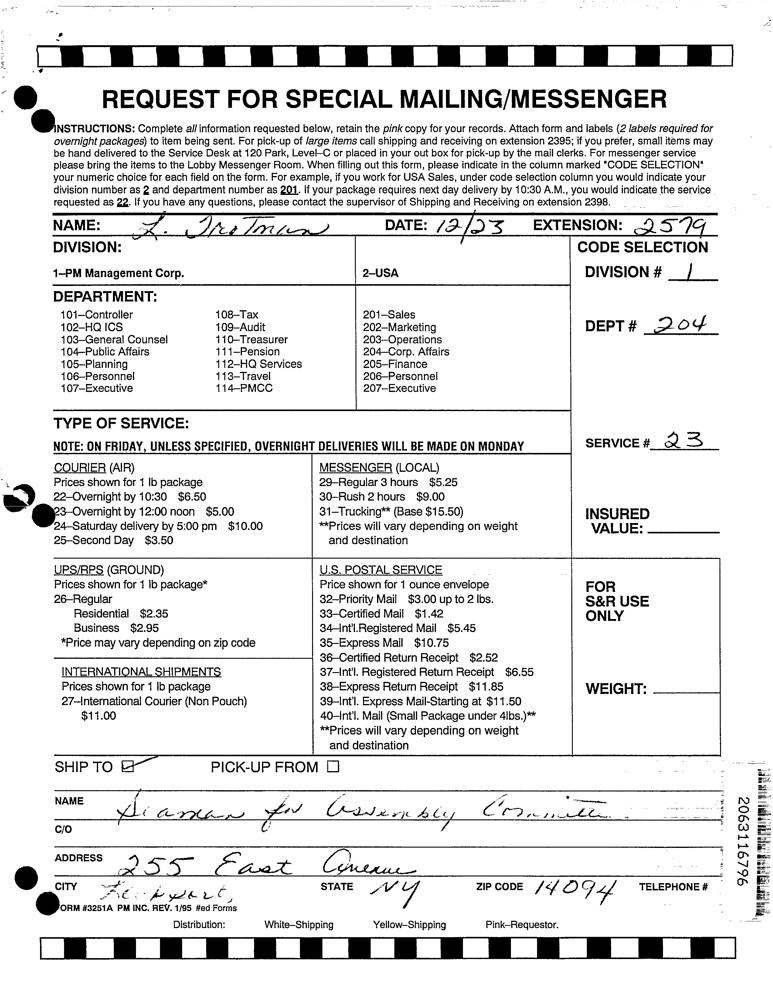 REQUEST FOR SPECIAL MAILING/MESSENGER
INSTRUCTIONS: Complete all information requested below, retain the pink copy for your records. Attach form and labels (2 labels required for
overnight packages) to item being sent. For pick-up of large items call shipping and receiving on extension 2395; if you prefer, small items may
be hand delivered to the Service Desk at 120 Park, Level–C or placed in your out box for pick-up by the mail clerks. For messenger service
please bring the items to the Lobby Messenger Room. When filling out this form, please indicate in the column marked "CODE SELECTION"
your numeric choice for each field on the form. For example, if you work for USA Sales, under code selection column you would indicate your
division number as 2 and department number as 201. If your package requires next day delivery by 10:30 A.M., you would indicate the service
requested as 22. If you have any questions, please contact the supervisor of Shipping and Receiving on extension 2398.
NAME: L. Trotman DATE: 12/23 EXTENSION: 2579
DIVISION: CODE SELECTION
1–PM Management Corp. 2–USA DIVISION # 1
DEPARTMENT:
101–Controller 108–Tax 201–Sales
102–HQ ICS 109–Audit 202–Marketing
103–General Counsel 110–Treasurer 203–Operations
104–Public Affairs 111–Pension 204–Corp. Affairs
105–Planning 112–HQ Services 205–Finance
106–Personnel 113–Travel 206–Personnel
107–Executive 114–PMCC 207–Executive
DEPT # 204
TYPE OF SERVICE:
NOTE: ON FRIDAY, UNLESS SPECIFIED, OVERNIGHT DELIVERIES WILL BE MADE ON MONDAY
SERVICE # 23
COURIER (AIR)
Prices shown for 1 lb package
22–Overnight by 10:30 $6.50
23–Overnight by 12:00 noon $5.00
24–Saturday delivery by 5:00 pm $10.00
25–Second Day $3.50
MESSENGER (LOCAL)
29–Regular 3 hours $5.25
30–Rush 2 hours $9.00
31–Trucking** (Base $15.50)
**Prices will vary depending on weight
and destination
INSURED
VALUE:
UPS/RPS (GROUND)
Prices shown for 1 lb package*
26–Regular
Residential $2.35
Business $2.95
*Price may vary depending on zip code
INTERNATIONAL SHIPMENTS
Prices shown for 1 lb package
27–International Courier (Non Pouch)
$11.00
U.S. POSTAL SERVICE
Price shown for 1 ounce envelope
32–Priority Mail $3.00 up to 2 lbs.
33–Certified Mail $1.42
34–Int'l.Registered Mail $5.45
35–Express Mail $10.75
36–Certified Return Receipt $2.52
37–Int'l. Registered Return Receipt $6.55
38–Express Return Receipt $11.85
39–Int'l. Express Mail-Starting at $11.50
40–Int'l. Mail (Small Package under 4lbs.)**
**Prices will vary depending on weight
and destination
FOR
S&R USE
ONLY
WEIGHT:
SHIP TO PICK-UP FROM
NAME Seaman for Assembly Committee
C/O
ADDRESS 255 East Avenue
CITY Lockport, STATE NY ZIP CODE 14094 TELEPHONE #
FORM #3251A PM INC. REV. 1/95 #ed Forms
Distribution: White–Shipping Yellow–Shipping Pink–Requestor.
2063116796